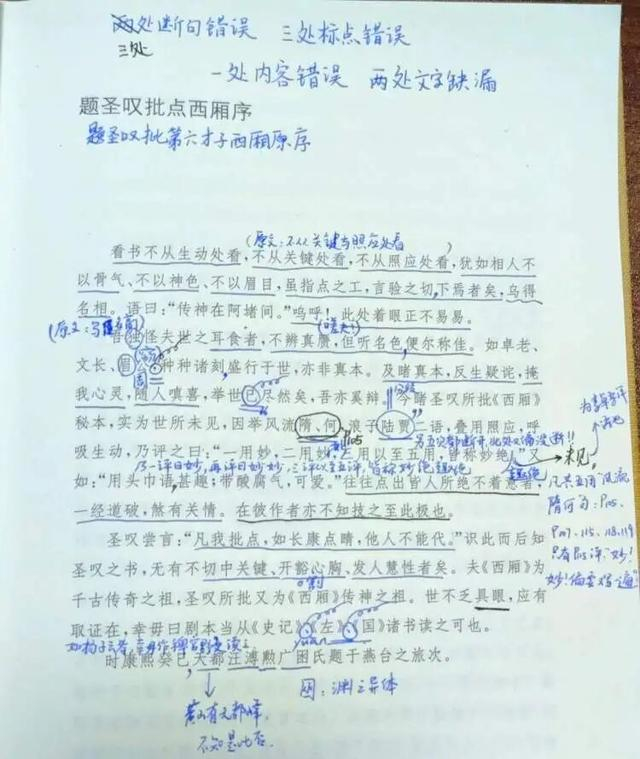 两处断句错误 三处标点错误
三处
一处内容错误 两处文字缺漏
题圣叹批点西厢序
题圣叹批第六才子西厢原序
(原文:不从关键与照应处看)
看书不从生动处看,不从关键处看,不从照应处看,犹如相人不
以骨气、不以神色、不以眉目,虽指点之工,言验之切,下焉者矣,乌得
名相。语曰:“传神在阿堵间。”呜呼!此处着眼正不易易。
吾独怪夫世之耳食者,不辨真赝,但听名色便尔称佳。如卓老
文长、眉公种种诸刻盛行于世,亦非真本。及睹真本,反生疑诧,掩
我心灵,随人嗔喜,举世已尽然矣,吾亦奚辩。今睹圣叹所批《西厢》
秘本,实为世所未见,因举风流隋、何,浪子陆贾二语,叠用照应,呼
吸生动,乃评之曰:“一用妙,二用妙,三用以至五用,皆称妙绝。”又
如:“用头巾语甚趣;带酸腐气,可爱。”往往点出皆人所绝不着意者,
一经道破,煞有关情。在彼作者亦不知技之至此极也。
圣叹尝言:“凡我批点,如长康点睛,他人不能代。”识此而后知
圣叹之书,无有不切中关键、开豁心胸、发人慧性者矣。夫《西厢》为
千古传奇之祖,圣叹所批又为《西厢》传神之祖。世不乏具眼,应有
取证在,幸毋曰剧本当从《史记》《左》《国》诸书读之可也。
时康熙癸巳天都汪溥勲广囦氏题于燕台之旅次。
囦:渊之异体
黄山有天都峰,
不知是此否。